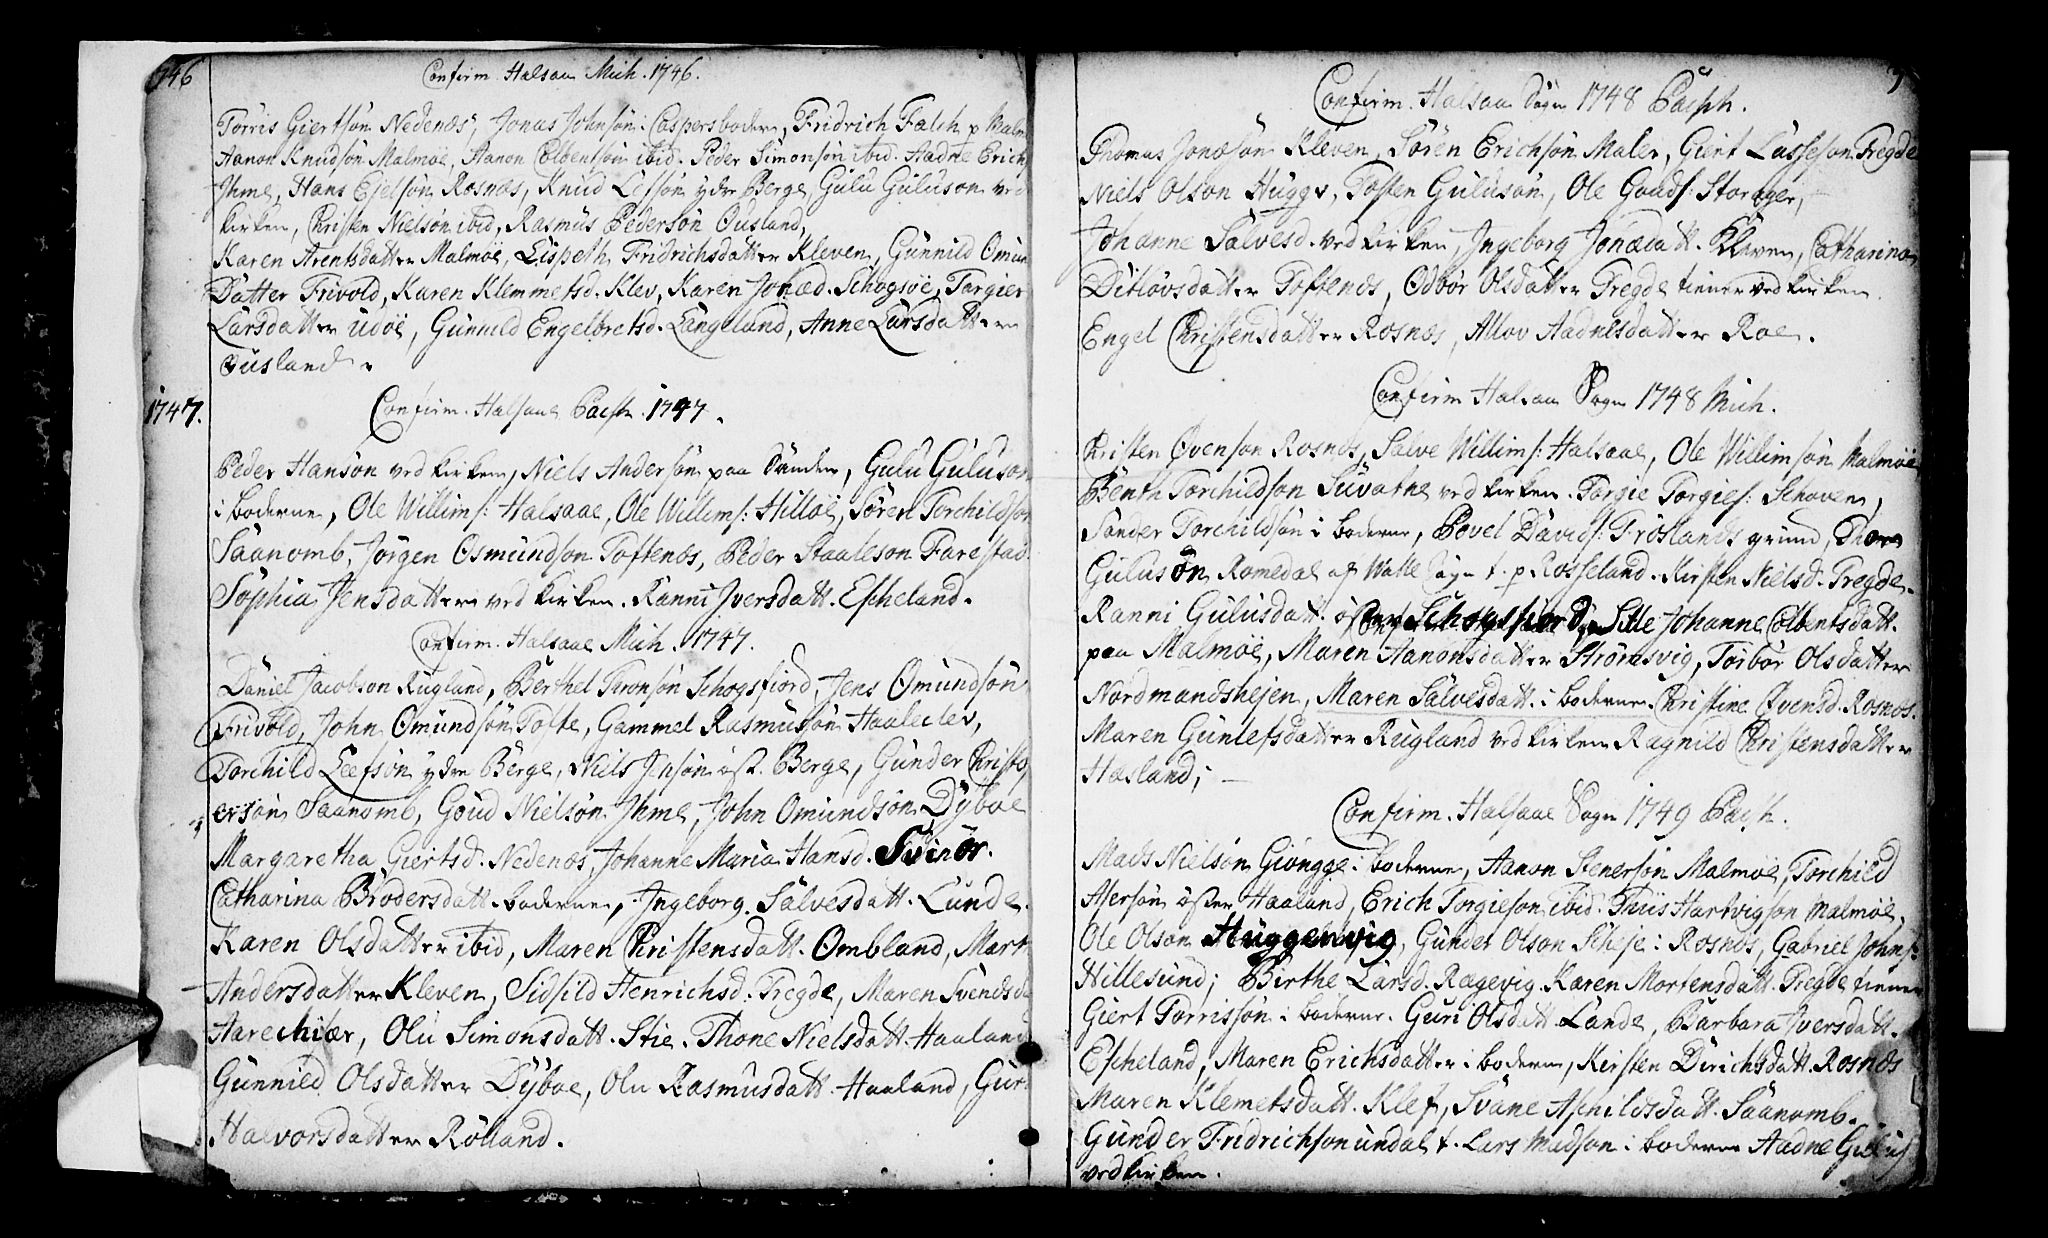 1746
Confirm. Halsaa Mich. 1746.
Torris Giertsøn Nedenæs, Jonas Johnsøn i Caspersboden, Fridrich Falch p Malm
Aanon Knudsøn Malmøe, Aanon Colbentsøn ibid. Peder Simonsøn ibid. Aadne Erich
Jhme, Hans Ejelsøn Rosnæs, Knud Lefsøn ydre Berge, Gulu Gulusøn ved
kirken, Christen Nielsøn ibid, Rasmus Pedersøn Ousland,
Karen Arentsdatter Malmøe, Lispeth Fridrichsdatter Kleven, Gunnild Omun
Datter Frivold, Karen Klemmetsd. Klev, Karen Jonæd. Schogsøe, Torgier
Larsdatter Udøe, Gunnild Engelbretsd. Langeland, Anne Larsdatter
Ousland.
1747.
Confirm. Halsaae Pasch. 1747.
Peder Hansøn ved kirken, Niels Andersøn paa Sanden, Gulu Gulusøn
i boderne, Ole Willims: Halsaae, Ole Willims: Hilløe, Søren Torchildsøn
Saanomb, Jørgen Osmundsøn Toftenæs, Peder Staalesøn Farestad
Sophia Jensdatter ved kirken. Ranni Jversdatt. Escheland.
Confirm. Halsaae Mich. 1747.
Daniel Jacobsøn Rugland, Berthel Aronsøn Schogsfiord, Jens Omundsøn
Frivold, John Omundsøn Tofte, Gammel Rasmusøn Haaleclev,
Torchild Leefsøn ydre Berge, Niels Jensøn øst. Berge, Gunder Christo
ersøn Saanomb, Goud Nielsøn Jhme, John Omundsøn Dyboe
Margaretha Giertsd. Nedenæs, Johanne Maria Hansd. Svinør.
Catharina Brodersdatt. boderne, Jngeborg Salvesdatt. Lunde.
Karen Olsdatter ibid, Maren Christensdatt. Ombland, Mart
Andersdatter Kleven, Sidsild Henrichsd. Fregde, Maren Svendsda
Aarechiær, Olu Simonsdatt. Stie. Thone Nielsdatt. Haaland
Gunnild Olsdatter Dyboe, Olu Rasmusdatt. Haaland, Guri
Halvorsdatter Rølland.
Confirm. Halsaa Sogn 1748 Pasch.
Thomas Jonæsøn Kleven, Søren Erichsøn Maler, Giert Lassesøn Fregde
Niels Olsøn Huggs, Tosten Gulusøn, Ole Gouds: Storager,
Johanne Salvesd. ved kirken, Jngeborg Jonædatt. Kleven, Catharina
Ditløvsdatter Toftenæs, Odbør Olsdatter Fregde tiener ved kirken.
Engel Christensdatter Rosnæs, Allov Aadnesdatter Roe.
Confirm Halsaa Sogn 1748 Mich.
Christen Ovensøn Rosnæs, Salve Willims: Halsaae, Ole Willimsøn Malmøe
Benth Torchildsøn Suvathe ved kirken. Torgie Torgies: Schoven,
Sander Torchildsøn i boderne, Povel Davids: Frøslands grund,
Gulusøn Romedal af Walle Sogn t. p Rosseland. Kirsten Nielsd. Fregde.
Ranni Gulusdatt. Schogsfiord, Sille Johanne Colbentsdatt.
paa Malmøe, Maren Aanonsdatter Strømsvig, Torbør Olsdatter
Nordmandshejen, Maren Salvesdatt. i boderne. Christine Ovensd. Rosnæs.
Maren Gunlefsdatter Rugland ved kirken Ragnild Christensdatter
Hasland;
Confirm. Halsaae Sogn 1749 Pasch.
Mads Nielsøn Giøngge i boderne, Aanon Stenersøn Malmøe, Torchild
Asersøn øster Haaland, Erich Torgiesøn ibid. Thiis Hartvigsøn Malmøe.
Ole Olsøn Huggenvig, Gunder Olsøn Scheje i Rosnæs, Gabriel Johns:
Hillesund; Birthe Larsd. Rægevig. Karen Mortensdatt. Fregde tiener
Giert Torrissøn i boderne. Guri Olsdatt. Lande, Barbara Jversdatt.
Escheland, Maren Erichsdatter i boderne, Kirsten Dirichsdatt. Rosnæs
Maren Klemetsdatt. Klef, Svane Aschildsdatt. Saanomb.
Gunder Fridrichsøn undal t. Lars Madsøn i boderne Aadne Gulus
ved kirken.